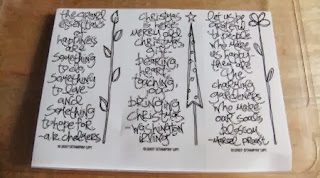 the grand
essentials
of
happiness
are
something
to do
something
to love
and
something
to hope for
-a.k.chalmers
© 2007 STAMPIN' UP!
christmas
is here
merry old
christmas
bearing
heart
touching
joy
bringing
christmas
-washington
irving
© 2007 STAMPIN' UP!
let us be
grateful
to people
who make
us happy
they are
the
charming
gardeners
who make
our souls
blossom
-marcel proust
© 2007 STAMPIN' UP!